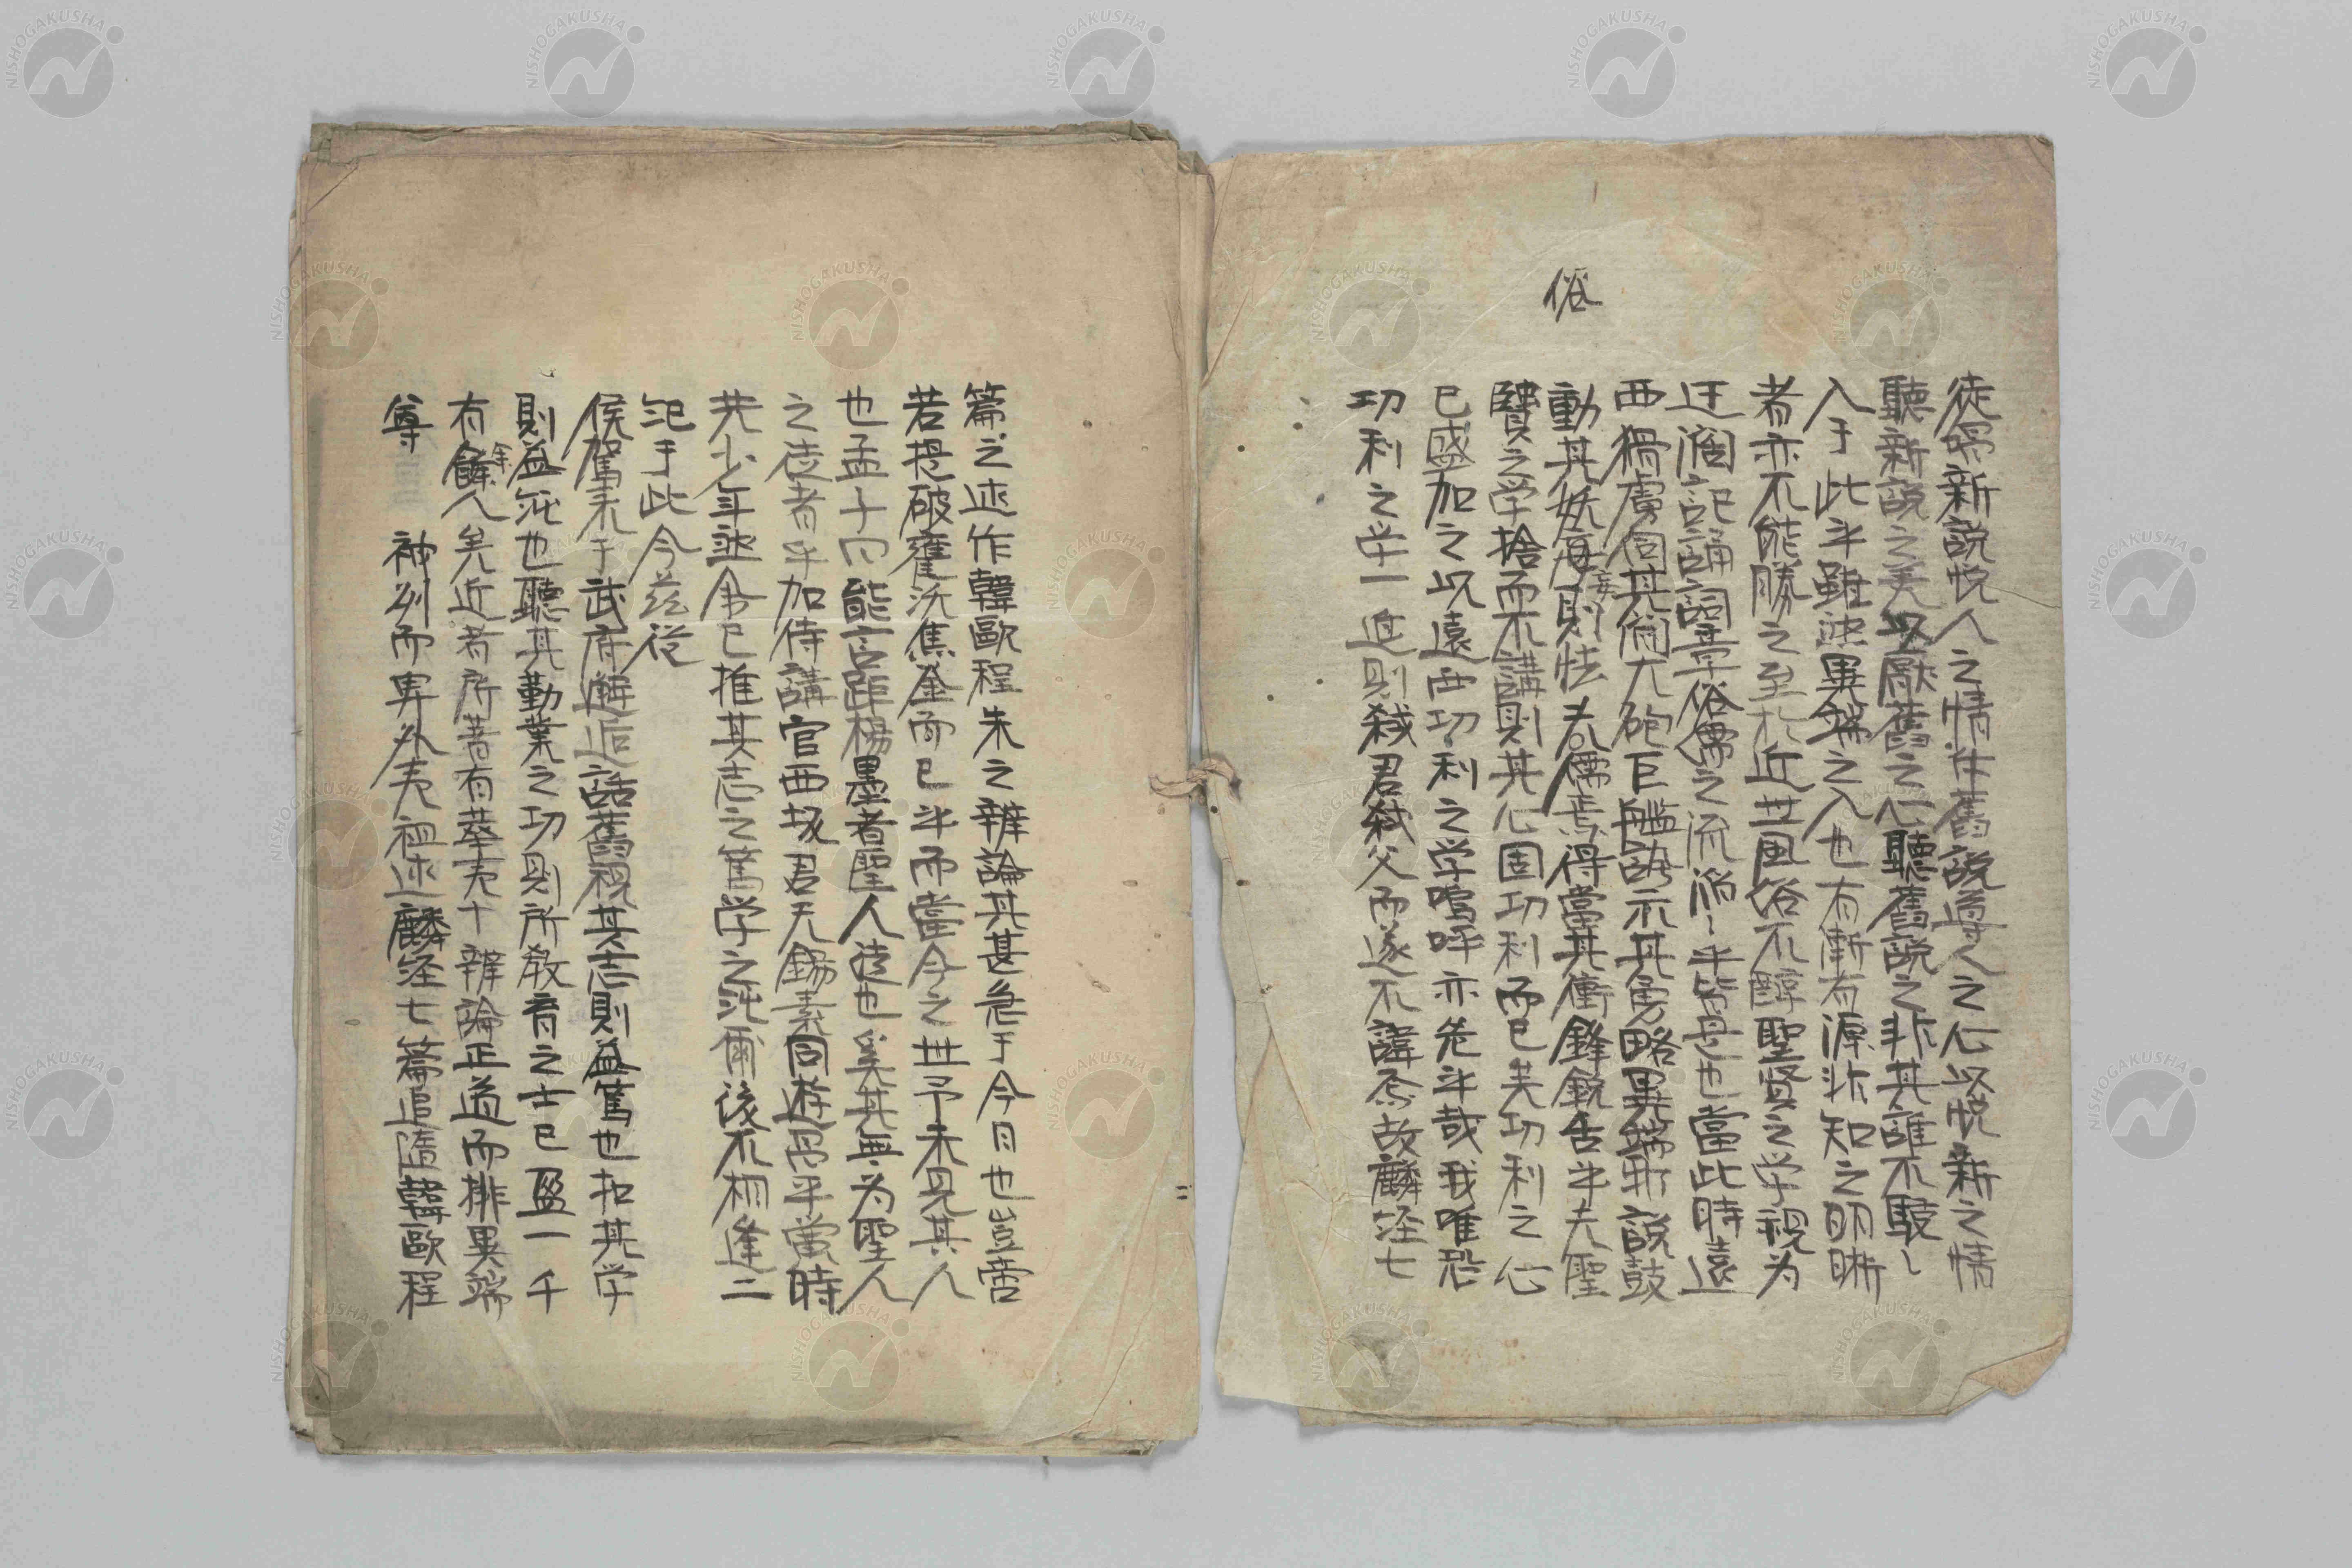 俗
徒唱新説悦人之情非舊説導人之心以悦新之情
聴新説之美以厭舊之心聴舊説之非其誰不駸〻
入于此乎雖然異端之入也有漸有源非知之明晰
者亦不能勝之至於近世風俗不醇聖賢之学視为
迂濶記誦詞章俗儒之流滔〻乎皆是也當此時遠
西猾虜伺其間大砲巨艦誇示其勇略異端邪説鼓
動其妖每則怯夫儒焉得當其衝鋒銳舌乎夫聖
賢之学捨而不講則其心固功利而已矣功利之心
已盛加之以遠西功利之学嗚呼亦危乎哉我唯恐
功利之学一進則弑君弑父而遂不諱焉故麟経七
篇之述作韓歐程朱之辨論其甚急于今日也豈啻
若提破甕沃焦釜而已乎而當今之世予未見其人
也孟子曰能言距楊墨者聖人徒也奚其無为聖人
之徒者乎加侍講官西坂君天錫素同遊昌平黌時
共少年然余已推其志之篤学之純爾後不相逢二
紀于此今茲従
侯駕来于武府邂逅話舊視其志則益篤也扣其学
則益純也聴其勤業之功則所教育之士已盈一千
有餘人矣近者所著有華夷十辨論正道而排異端
尊 神州而卑外夷祖述麟経七篇追隨韓歐程